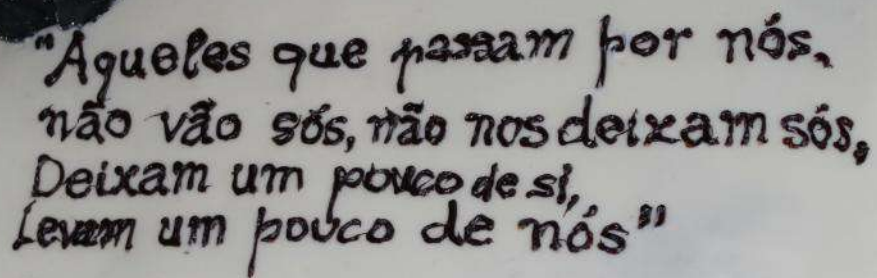 "Aqueles que passam por nós,
não vão sós, não nos deixam sós,
Deixam um pouco de si,
Levam um pouco de nós"